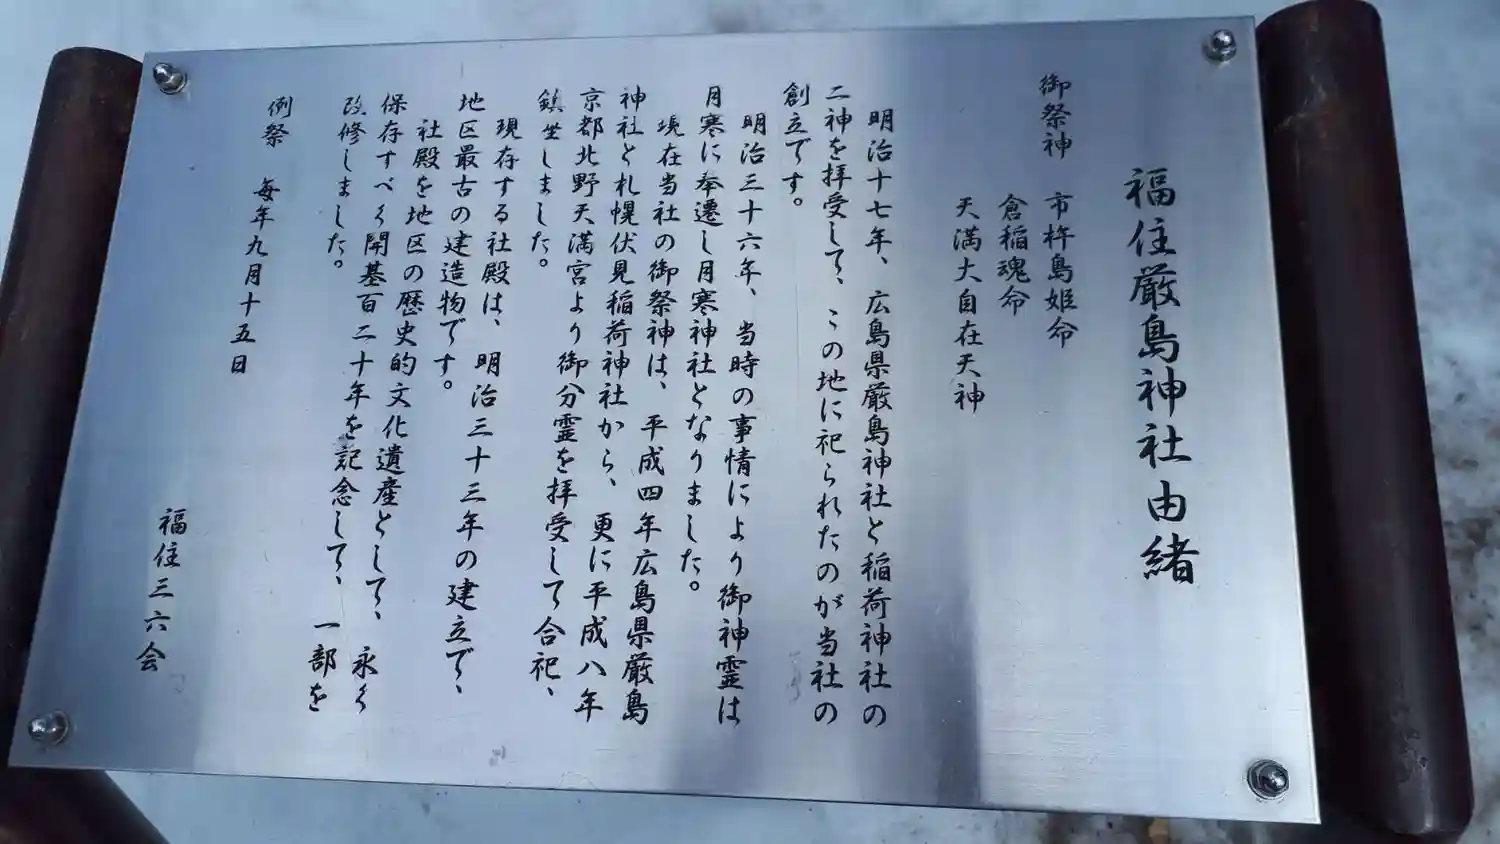 福住厳島神社由緒
御祭神 市杵島姫命
倉稲魂命
天満大自在天神
明治十七年、広島県厳島神社と稲荷神社の
二神を拝受して、この地に祀られたのが当社の
創立です。
明治三十六年、当時の事情により御神霊は
月寒に奉遷し月寒神社となりました。
現在当社の御祭神は、平成四年広島県厳島
神社と札幌伏見稲荷神社から、更に平成八年
京都北野天満宮より御分霊を拝受して合祀、
鎮坐しました。
現存する社殿は、明治三十三年の建立で、
地区最古の建造物です。
社殿を地区の歴史的文化遺産として、永く
保存すべく開基百二十年を記念して、一部を
改修しました。
例祭 毎年九月十五日
福住三六会